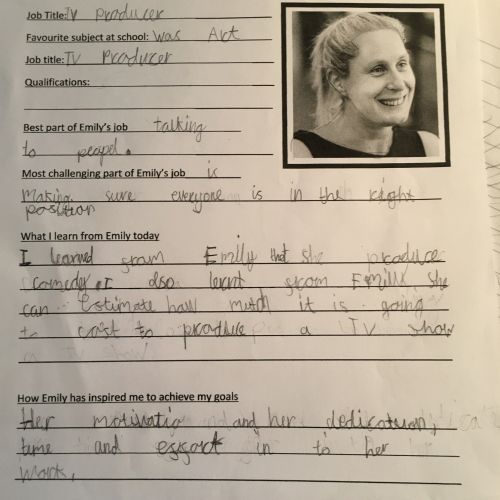 Job Title: TV Producer
Favourite subject at school: was Art
Job title: TV Producer
Qualifications:
Best part of Emily's job talking
to peopd.
Most challenging part of Emily's job is
Making sure everyone is in the right
position
What I learn from Emily today
I learned from Emily that she produce
comedy. I also learnt from Emily she
can Estimate how much it is going
to cost to produce a TV show
How Emily has inspired me to achieve my goals
Her motivatio and her dedication,
time and effort in to her
work.